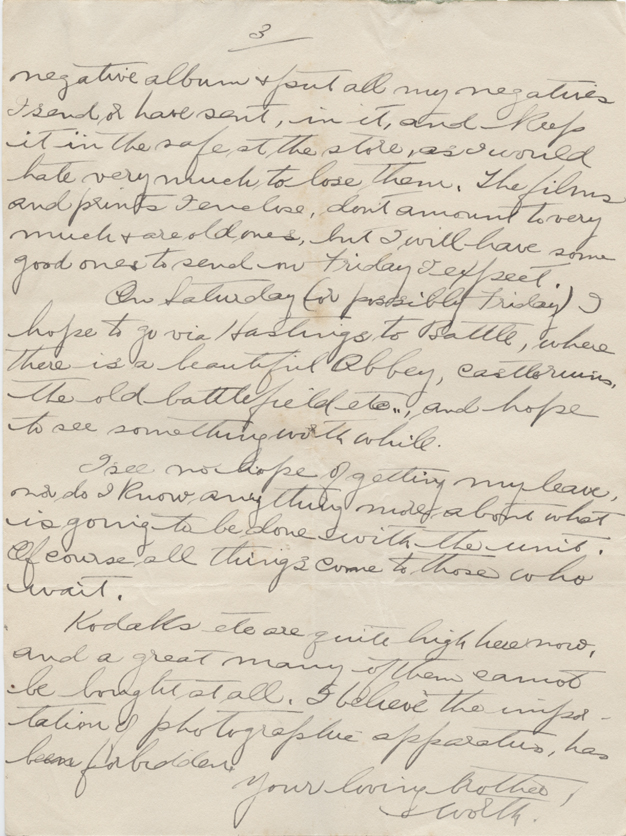 3
negative album & put all my negatives
I send, or have sent, in it, and keep
it in the safe at the store, as I would
hate very much to lose them. The films
and prints I enclose, dont amount to very
much & are old ones, but I will have some
good ones to send on Friday I expect.
On Saturday (or possibly Friday) I
hope to go via Hastings to Battle, where
there is a beautiful Abbey, castle ruins,
the old battlefield etc., and hope
to see something worth while.
I see no hope of getting my leave,
nor do I know anything more about what
is going to be done with the unit.
Of course all things come to those who
wait.
Kodaks etc are quite high here now,
and a great many of them cannot
be bought at all. I believe the impor-
tation of photographic apparatus, has
been forbidden.
Your loving brother,